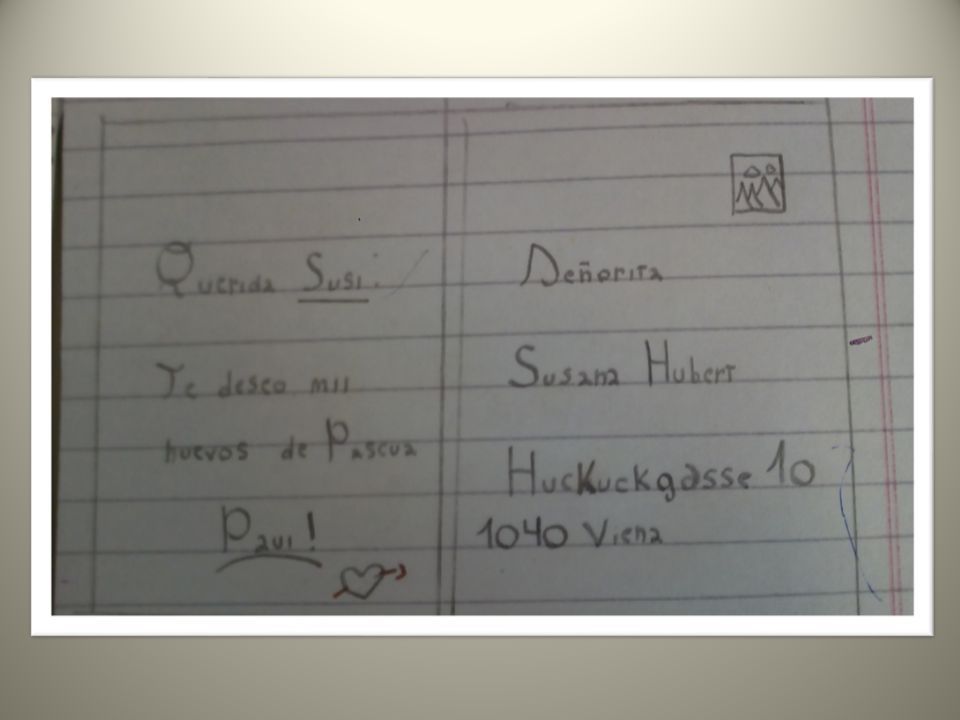 Querida Susi:
Te deseo mil
huevos de Pascua
Paul!
Deñorita
Susana Hubert
Huckuckgasse 10
1040 Viena